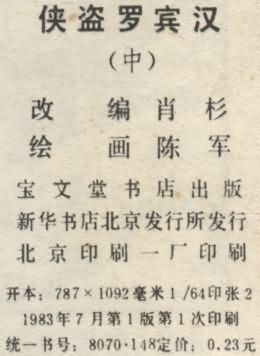 侠盗罗宾汉
(中)
改 编 肖 杉
绘 画 陈 军
宝文堂书店出版
新华书店北京发行所发行
北京印刷一厂印刷
开本：787×1092毫米1/64印张2
1983年7月第1版第1次印刷
统一书号：8070·148定价：0.23元